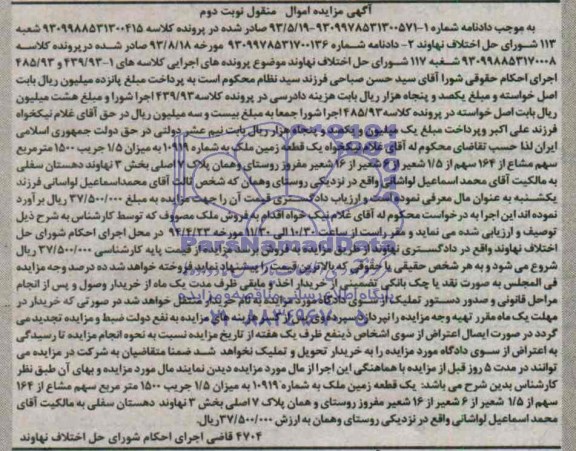 آگهی مزایده اموال منقول نوبت دوم
به موجب دادنامه شماره ۱-۹۳۰۹۹۷۸۵۳۱۳۰۰۵۷۱-۹۳/۵/۱۹ صادر شده در پرونده کلاسه ۹۳۰۹۹۸۸۵۳۱۳۰۰۴۱۵ شعبه
۱۱۳ شورای حل اختلاف نهاوند ۲- دادنامه شماره ۹۳۰۹۹۷۸۵۳۱۷۰۰۱۳۶ مورخه ۹۳/۸/۱۸ صادر شده در پرونده کلاسه
۹۳۰۹۹۸۸۵۳۱۷۰۰۰۸ شعبه ۱۱۷ شورای حل اختلاف نهاوند موضوع پرونده های اجرایی کلاسه های ۱-۴۳۹/۹۳ و ۴۸۵/۹۳
اجرای احکام حقوقی شورا آقای سید حسن صباحی فرزند سید نظام محکوم است به پرداخت مبلغ پانزده میلیون ریال بابت
اصل خواسته و مبلغ یکصد و پنجاه هزار ریال بابت هزینه دادرسی در پرونده کلاسه ۴۳۹/۹۳ اجرا شورا و مبلغ هشت میلیون
ریال بابت اصل خواسته در پرونده کلاسه ۴۸۵/۹۳ اجرا شورا جمعا به مبلغ بیست و سه میلیون ریال در حق آقای غلام نیکخواه
فرزند علی اکبر و پرداخت مبلغ یک میلیون و یکصد و پنجاه هزار ریال بابت نیم عشر دولتی در حق دولت جمهوری اسلامی
ایران لذا حسب تقاضای محکوم له آقای غلام نیکخواه یک قطعه زمین ملک به شماره ۱۰۹۱۹ به میزان ۱/۵ جریب ۱۵۰۰ متر مربع
سهم مشاع از ۱۶۴ سهم از ۱/۵ شعیر از ۶ شعیر از ۱۶ شعیر مفروز روستای وهمان پلاک ۷ اصلی بخش ۳ نهاوند دهستان سفلی
به مالکیت آقای محمد اسماعیل لواسانی واقع در نزدیکی روستای وهمان که شخص ثالث آقای محمداسماعیل لواسانی فرزند
یکشنبه به عنوان مال معرفی نموده است و ارزیاب دادگستری قیمت آن را جهت مزایده به مبلغ ۳۷/۵۰۰/۰۰۰ ریال برآورد
نموده اند این اجرا به درخواست محکوم له آقای غلام نیک خواه اقدام به فروش ملک مصوف که توسط کارشناس به شرح ذیل
توصیف و ارزیابی شده می نماید و مقرر است از ساعت ۱۰/۳۰ الی ۱۱/۳۰ مورخه ۹۴/۴/۲۳ در محل اجرای احکام شورای حل
اختلاف نهاوند واقع در دادگستری نهاوند از طریق مزایده به فروش برسد مزایده از قیمت پایه کارشناسی ۳۷/۵۰۰/۰۰۰ ریال
شروع می شود و به هر شخص حقیقی یا حقوقی که بالاترین قیمت را پیشنهاد نماید فروخته خواهد شد ده درصد وجه مزایده
فی المجلس به صورت نقد یا چک بانکی تضمینی از خریدار اخذ و مابقی ظرف مدت یک ماه از خریدار وصول و پس از انجام
مراحل قانونی و صدور دستور تملیک از سوی دادگاه مورد مزایده به نام خریدار منتقل خواهد شد در صورتی که خریدار در
مهلت یک ماه مقرر تهیه وجه مزایده را نپردازد سپرده وی پس از کسر هزینه های مزایده به نفع دولت ضبط و مزایده تجدید می
گردد در صورت ایصال اعتراض از سوی اشخاص ذینفع ظرف یک هفته از تاریخ مزایده نسبت به نحوه انجام مزایده تا رسیدگی
به اعتراض از سوی دادگاه مورد مزایده را به خریدار تحویل و تملیک نخواهد شد ضمنا متقاضیان به شرکت در مزایده می
توانند در مدت ۵ روز قبل از مزایده با هماهنگی این اجرا از مال مورد مزایده دیدن نمایند مال مورد مزایده و بهای آن طبق نظر
کارشناس بدین شرح می باشد: یک قطعه زمین ملک به شماره ۱۰۹۱۹ به میزان ۱/۵ جریب ۱۵۰۰ متر مربع سهم مشاع از ۱۶۴
سهم از ۱/۵ شعیر از ۶ شعیر از ۱۶ شعیر مفروز روستای و همان پلاک ۷ اصلی بخش ۳ نهاوند دهستان سفلی به مالکیت آقای
محمد اسماعیل لواشانی واقع در نزدیکی روستای وهمان به ارزش ۳۷/۵۰۰/۰۰۰ ریال.
۴۷۰۴ قاضی اجرای احکام شورای حل اختلاف نهاوند
ParsNamadData